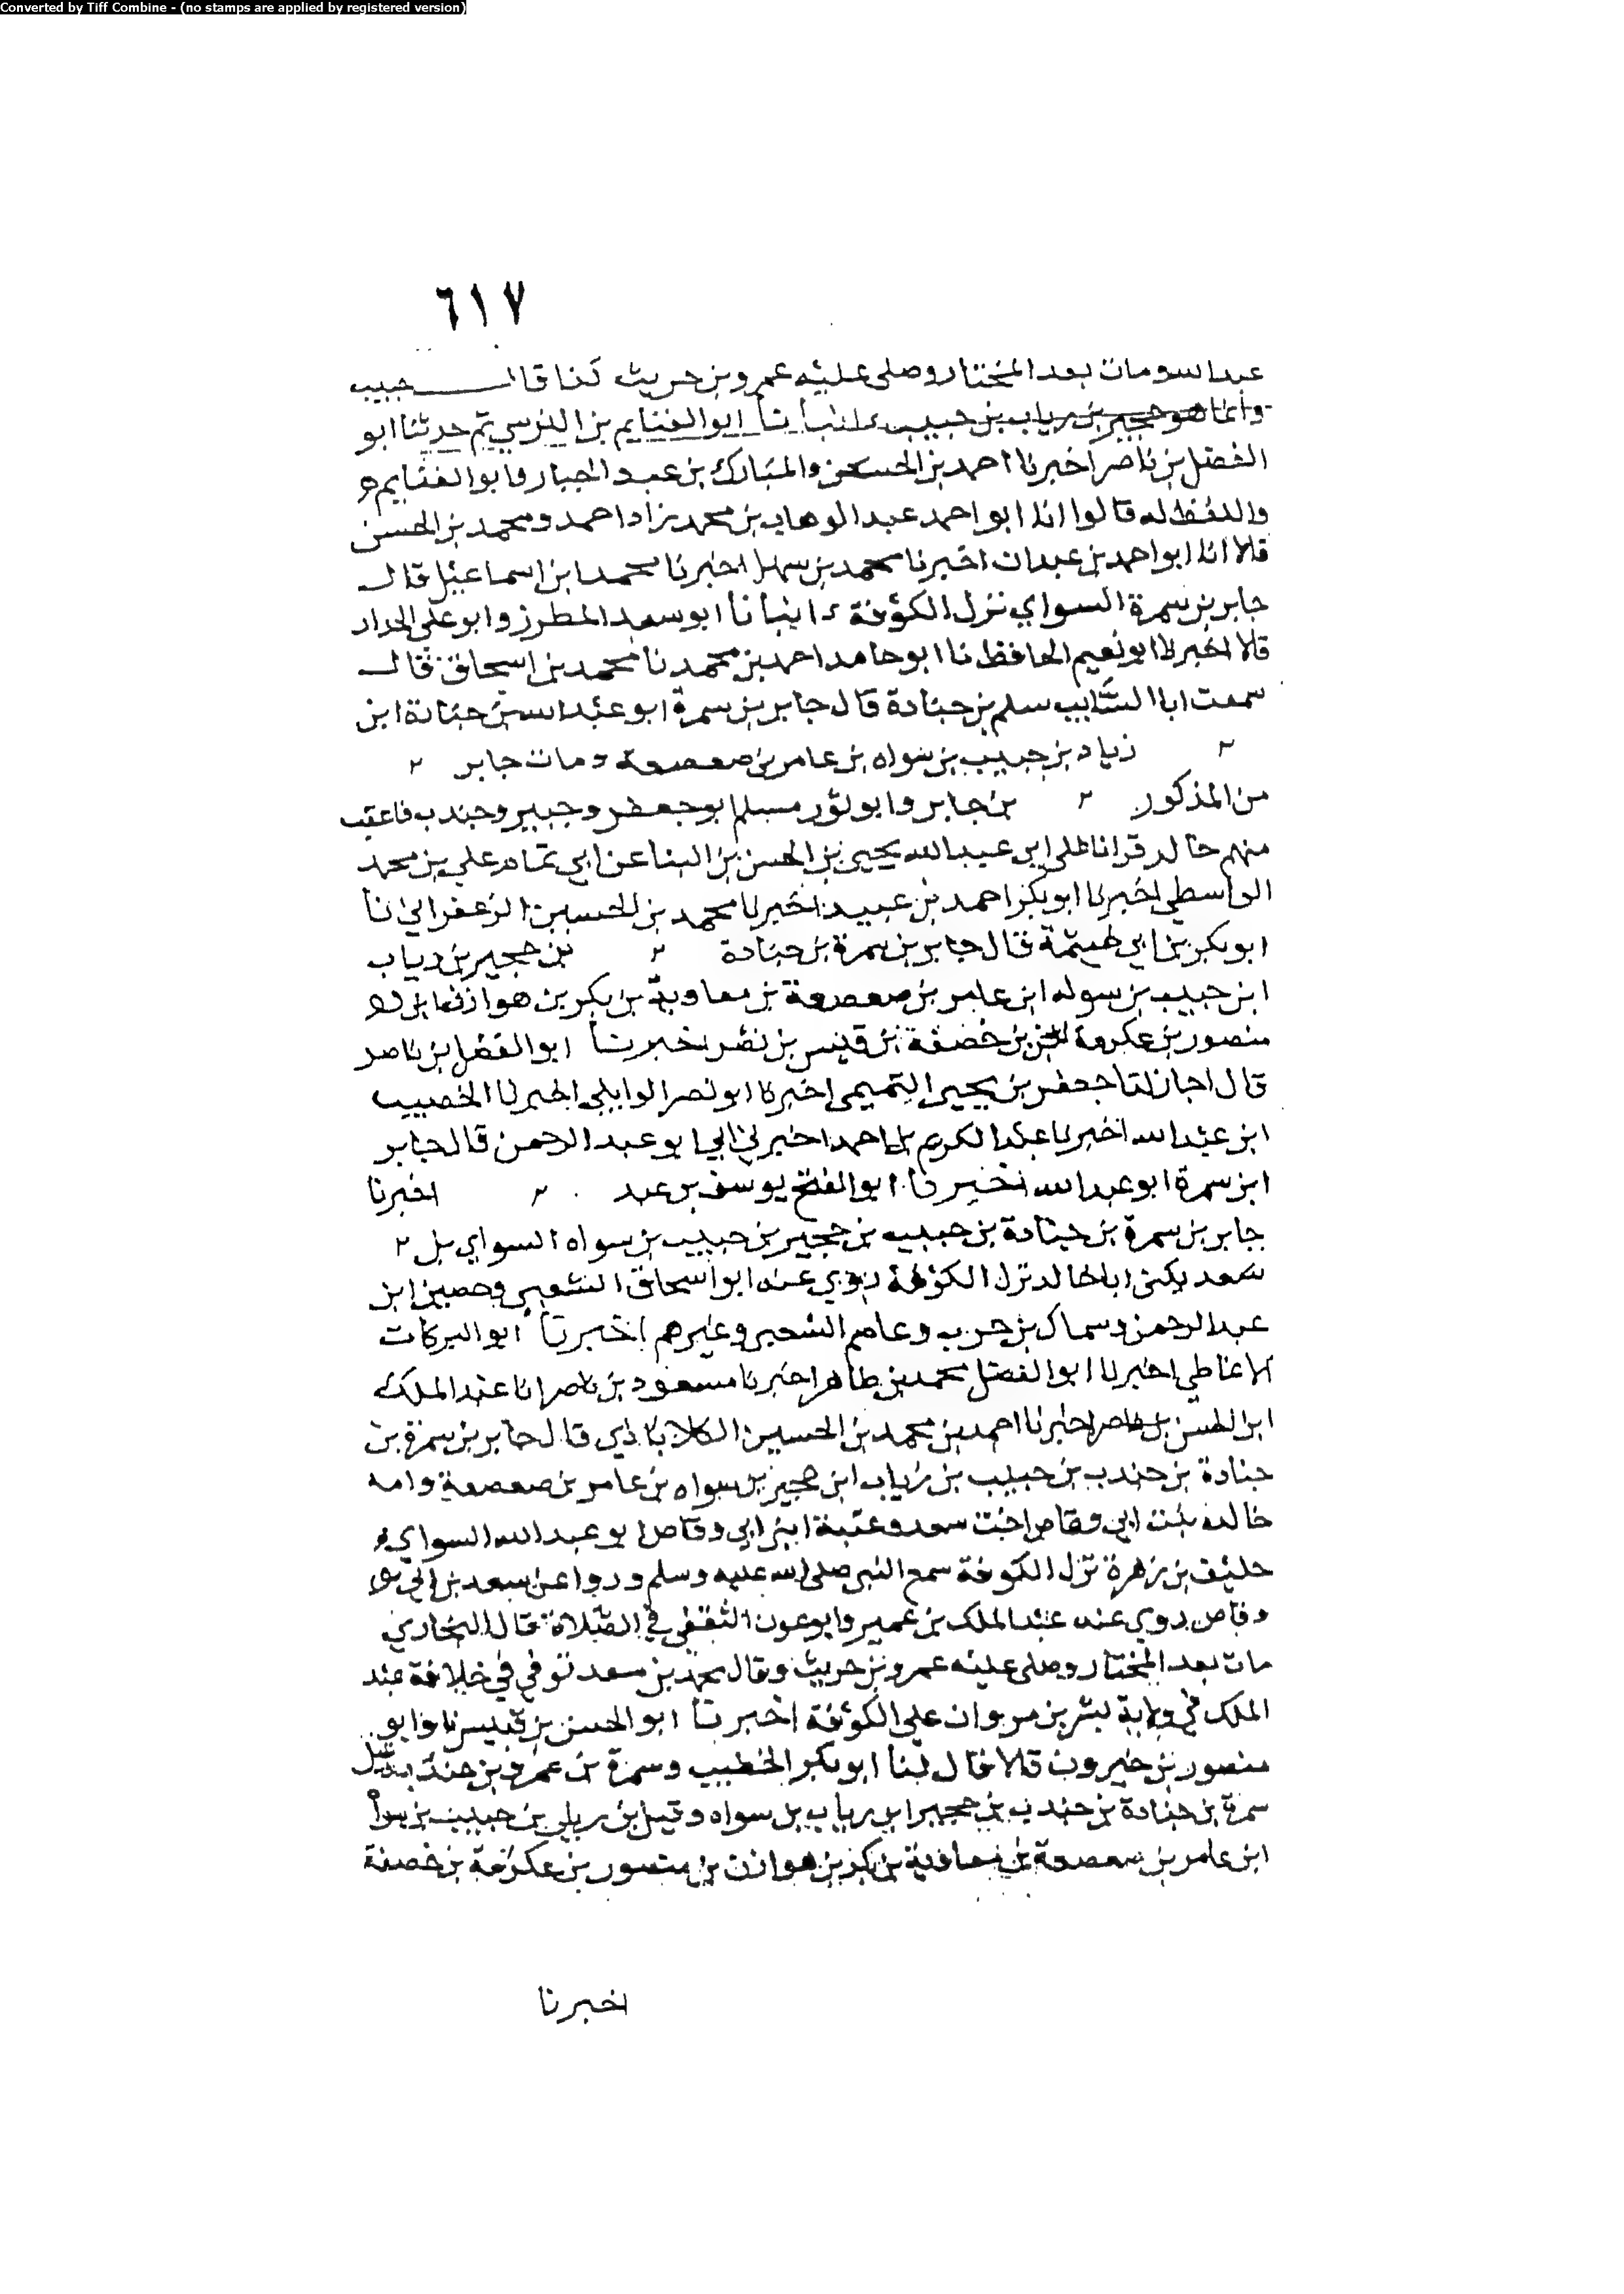 Converted by Tiff Combine - (no stamps are applied by registered version)
٦١٧
عبد الله ومات بعد المختار وصلى عليه عمرو بن حريث كذا قال حبيب
وانما هو حجير بن رياب بن حبيب انبأنا ابو الغنايم بن النرسي ثم حدثنا ابو
الفضل بن ناصر اخبرنا احمد بن الحسن والمبارك بن عبد الجبار وابو الغنايم
واللفظ له قالوا انا ابو احمد عبد الوهاب بن محمد زاد احمد ومحمد بن الحسن
قالا انا ابو احمد بن عبدان اخبرنا محمد بن سهل اخبرنا محمد ابن اسماعيل قال
جابر بن سمرة السواي نزل الكوفة انبانا ابو سعد المطرز وابو علي الحداد
قالا اخبرنا ابو نعيم الحافظ نا ابو حامد احمد بن محمد نا محمد بن اسحاق قال
سمعت ابا السايب سلم بن جنادة قال جابر بن سمرة ابو عبد الله بن جنادة ابن
زياد بن حبيب بن سواه بن عامر بن صعصعة ومات جابر
من المذكور بن جابر وابو ثور مسلم ابو جعفر وجبير وجندب فاعقب
منهم خالد قرانا على ابي عبد الله يحيى بن الحسن بن البنا عن ابي تمام علي بن محمد
الواسطي اخبرنا ابو بكر احمد بن عبيد اخبرنا محمد بن الحسين الزعفراني نا
ابو بكر بن ابي خيثمة قال جابر بن سمرة بن جنادة بن حجير بن رياب
ابن حبيب بن سواه ابن عامر بن صعصعة بن معاوية بن بكر بن هوازن
منصور بن عكرمة بن خصفة بن قيس بن نضر اخبرنا ابو الفضل بن ناصر
قال اجاز لنا جعفر بن يحيى التميمي اخبرنا ابو نصر الوايلي اخبرنا الخصيب
ابن عبد الله اخبرنا عبد الكريم بن احمد اخبرني ابي ابو عبد الرحمن قال جابر
ابن سمرة ابو عبد الله اخبرنا ابو الفتح يوسف بن عبد اخبرنا
جابر بن سمرة بن جنادة بن حبيب بن حجير بن حبيب بن سواه السواي بل
سعد يكنى ابا خالد نزل الكوفة روي عنه ابو اسحاق الشعبي وحصين ابن
عبد الرحمن وسماك بن حرب وعامر الشعبي وغيرهم اخبرنا ابو البركات
الانماطي اخبرنا ابو الفضل محمد بن طاهر اخبرنا مسعود بن ناصر انا عبد الملك
ابن الحسن اخبرنا احمد بن محمد بن الحسين الكلاباذي قال جابر بن سمرة بن
جنادة بن جندب بن حبيب بن رياب ابن حجير بن سواه بن عامر بن صعصعة وامه
خالده بنت ابي وقاص اخت سعد وعتبة ابني ابي وقاص ابو عبد الله السواي
حليف بن زهرة نزل الكوفة سمع النبي صلى الله عليه وسلم وروا عن سعد بن ابي
وقاص روي عنه عبد الملك بن عمير وابو عون الثقفي في الصلاة قال البخاري
مات بعد المختار وصلى عليه عمرو بن حريث وقال محمد بن سعد توفي في خلافة عبد
الملك في ولاية بشر بن مروان على الكوفة اخبرنا ابو الحسن بن قبيس نا وابو
منصور بن خيرون قالا قال لنا ابو بكر الخطيب وسمرة بن عمرو بن جندب وقيل
سمرة بن جنادة بن جندب بن حجير ابن رياب بن سواه وقيل بن رياب بن حبيب بن سواه
ابن عامر بن صعصعة بن معاوية بن بكر بن هوازن بن منصور بن عكرمة بن خصفة
اخبرنا